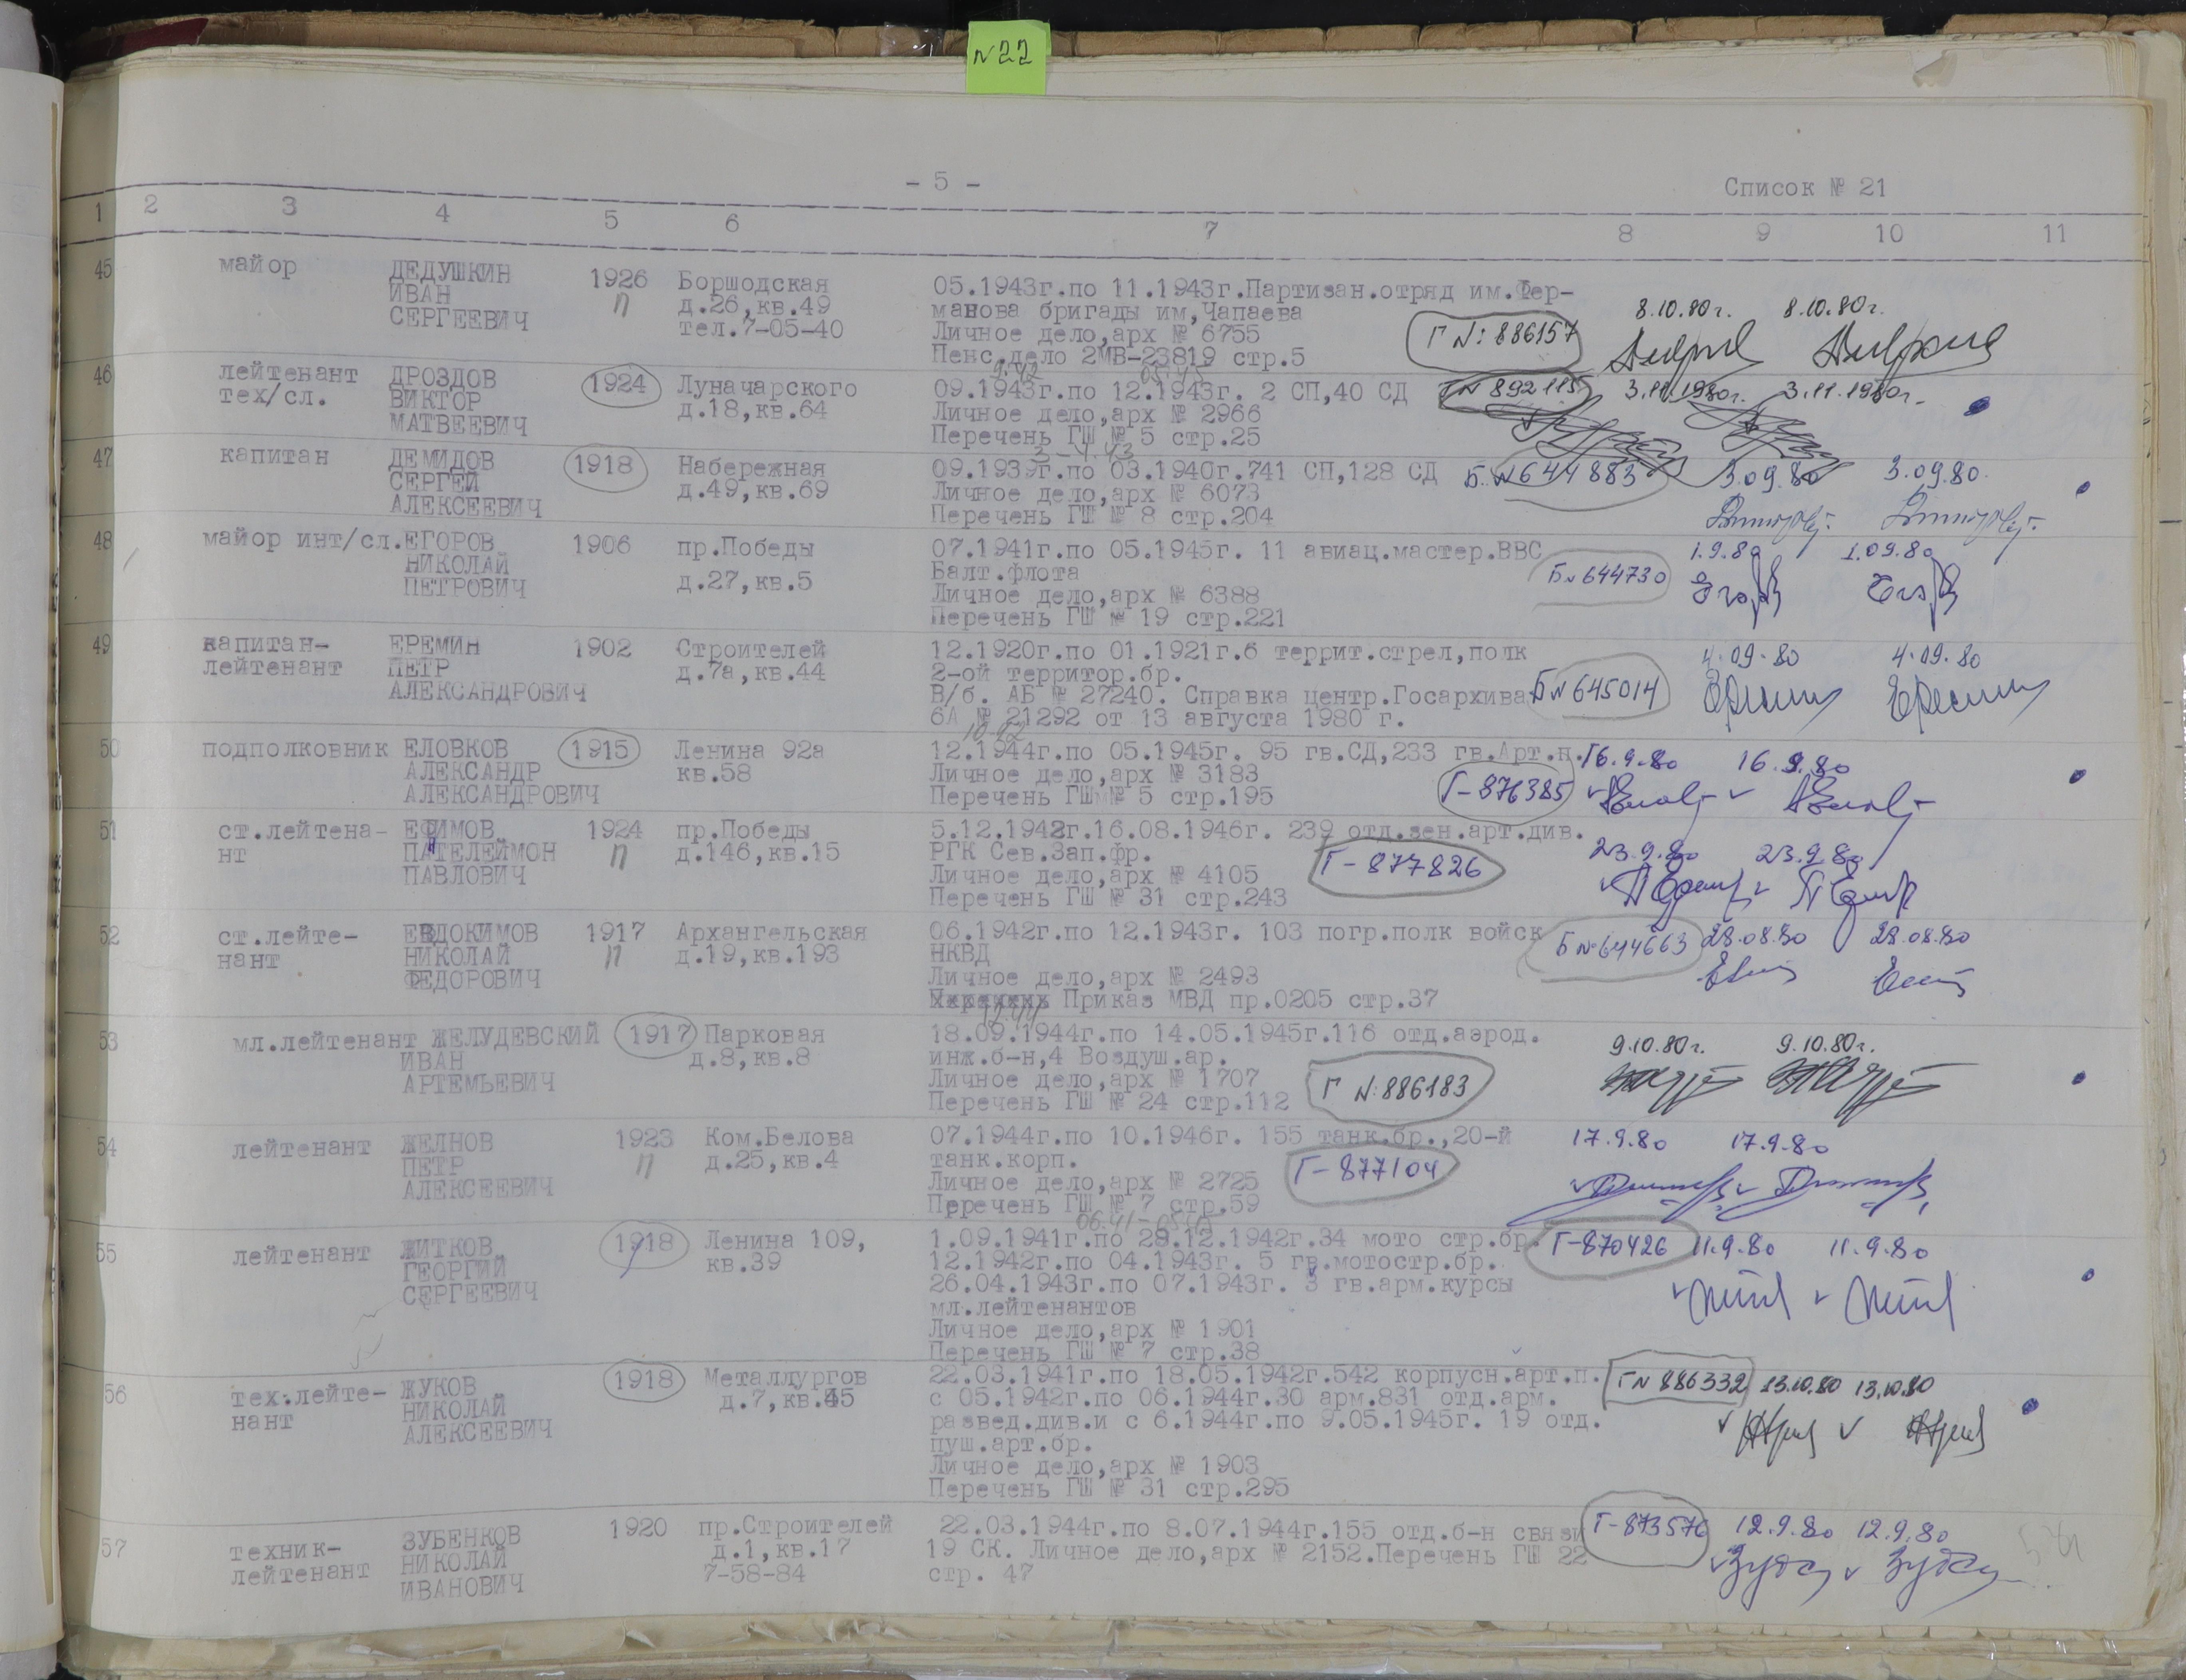 №22
- 5 -
Список № 21
1 2 3 4 5 6 7 8 9 10 11
45 майор ДЕДУШКИН 1926 Боршодская 05.1943г.по 11.1943г.Партизан.отряд им.Фер-
ИВАН п д.26,кв.49 манова бригады им,Чапаева 8.10.80г. 8.10.80г.
СЕРГЕЕВИЧ тел.7-05-40 Личное дело,арх № 6755 Г №: 886157
Пенс.дело 2МВ-23819 стр.5
46 лейтенант ДРОЗДОВ 1924 Луначарского 09.1943г.по 12.1943г. 2 СП,40 СД ГN 892115 3.11.1980г. 3.11.1980г.
тех/сл. ВИКТОР д.18,кв.64 Личное дело,арх № 2966
МАТВЕЕВИЧ Перечень ГШ № 5 стр.25
47 капитан ДЕМИДОВ 1918 Набережная 09.1939г.по 03.1940г.741 СП,128 СД Б.N644883 3.09.80 3.09.80.
СЕРГЕЙ д.49,кв.69 Личное дело,арх № 6073
АЛЕКСЕЕВИЧ Перечень ГШ № 8 стр.204
48 майор инт/сл.ЕГОРОВ 1906 пр.Победы 07.1941г.по 05.1945г. 11 авиац.мастер.ВВС 1.9.80 1.09.80
НИКОЛАЙ Балт.флота БN644730
ПЕТРОВИЧ д.27,кв.5 Личное дело,арх № 6388
Перечень ГШ № 19 стр.221
49 капитан- ЕРЕМИН 1902 Строителей 12.1920г.по 01.1921г.6 террит.стрел,полк 4.09.80 4.09.80
лейтенант ПЕТР д.7а,кв.44 2-ой территор.бр.
АЛЕКСАНДРОВИЧ В/б. АБ № 27240. Справка центр.Госархива БN645014
6А № 21292 от 13 августа 1980 г.
50 подполковник ЕЛОВКОВ 1915 Ленина 92а 12.1944г.по 05.1945г. 95 гв.СД,233 гв.Арт.п. 16.9.80 16.9.80
АЛЕКСАНДР кв.58 Личное дело,арх № 3183 Г-876385
АЛЕКСАНДРОВИЧ Перечень ГШ № 5 стр.195
51 ст.лейтена- ЕФИМОВ 1924 пр.Победы 5.12.1942г.16.08.1946г. 239 отд.зен.арт.див.
нт ПАТЕЛЕЙМОН п д.146,кв.15 РГК Сев.Зап.фр. Г-877826 23.9.80 23.9.80
ПАВЛОВИЧ Личное дело,арх № 4105
Перечень ГШ № 31 стр.243
52 ст.лейте- ЕВДОКИМОВ 1917 Архангельская 06.1942г.по 12.1943г. 103 погр.полк войск БN644663 28.08.80 28.08.80
нант НИКОЛАЙ п д.19,кв.193 НКВД
ФЕДОРОВИЧ Личное дело,арх № 2493
Приказ МВД пр.0205 стр.37
53 мл.лейтенант ЖЕЛУДЕВСКИЙ 1917 Парковая 18.09.1944г.по 14.05.1945г.116 отд.аэрод.
ИВАН д.8,кв.8 инж.б-н,4 Воздуш.ар. 9.10.80г. 9.10.80г.
АРТЕМЬЕВИЧ Личное дело,арх № 1707 Г N:886183
Перечень ГШ № 24 стр.112
54 лейтенант ЖЕЛНОВ 1923 Ком.Белова 07.1944г.по 10.1946г. 155 танк.бр.,20-й 17.9.80 17.9.80
ПЕТР п д.25,кв.4 танк.корп. Г-877104
АЛЕКСЕЕВИЧ Личное дело,арх № 2725
Перечень ГШ № 7 стр.59
55 лейтенант ЖИТКОВ 1918 Ленина 109, 1.09.1941г.по 29.12.1942г.34 мото стр.бр. Г-870426 11.9.80 11.9.80
ГЕОРГИЙ кв.39 12.1942г.по 04.1943г. 5 гв.мотостр.бр.
СЕРГЕЕВИЧ 26.04.1943г.по 07.1943г. 3 гв.арм.курсы
мл.лейтенантов
Личное дело,арх № 1901
Перечень ГШ № 7 стр.38
56 тех.лейте- ЖУКОВ 1918 Металлургов 22.03.1941г.по 18.05.1942г.542 корпусн.арт.п. ГN 886332 13.10.80 13.10.80
нант НИКОЛАЙ д.7,кв.45 с 05.1942г.по 06.1944г.30 арм.831 отд.арм.
АЛЕКСЕЕВИЧ развед.див.и с 6.1944г.по 9.05.1945г. 19 отд.
пуш.арт.бр.
Личное дело,арх № 1903
Перечень ГШ № 31 стр.295
57 техник- ЗУБЕНКОВ 1920 пр.Строителей 22.03.1944г.по 8.07.1944г.155 отд.б-н связи Г-873576 12.9.80 12.9.80
лейтенант НИКОЛАЙ д.1,кв.17 19 СК. Личное дело,арх № 2152.Перечень ГШ 22
ИВАНОВИЧ 7-58-84 стр. 47